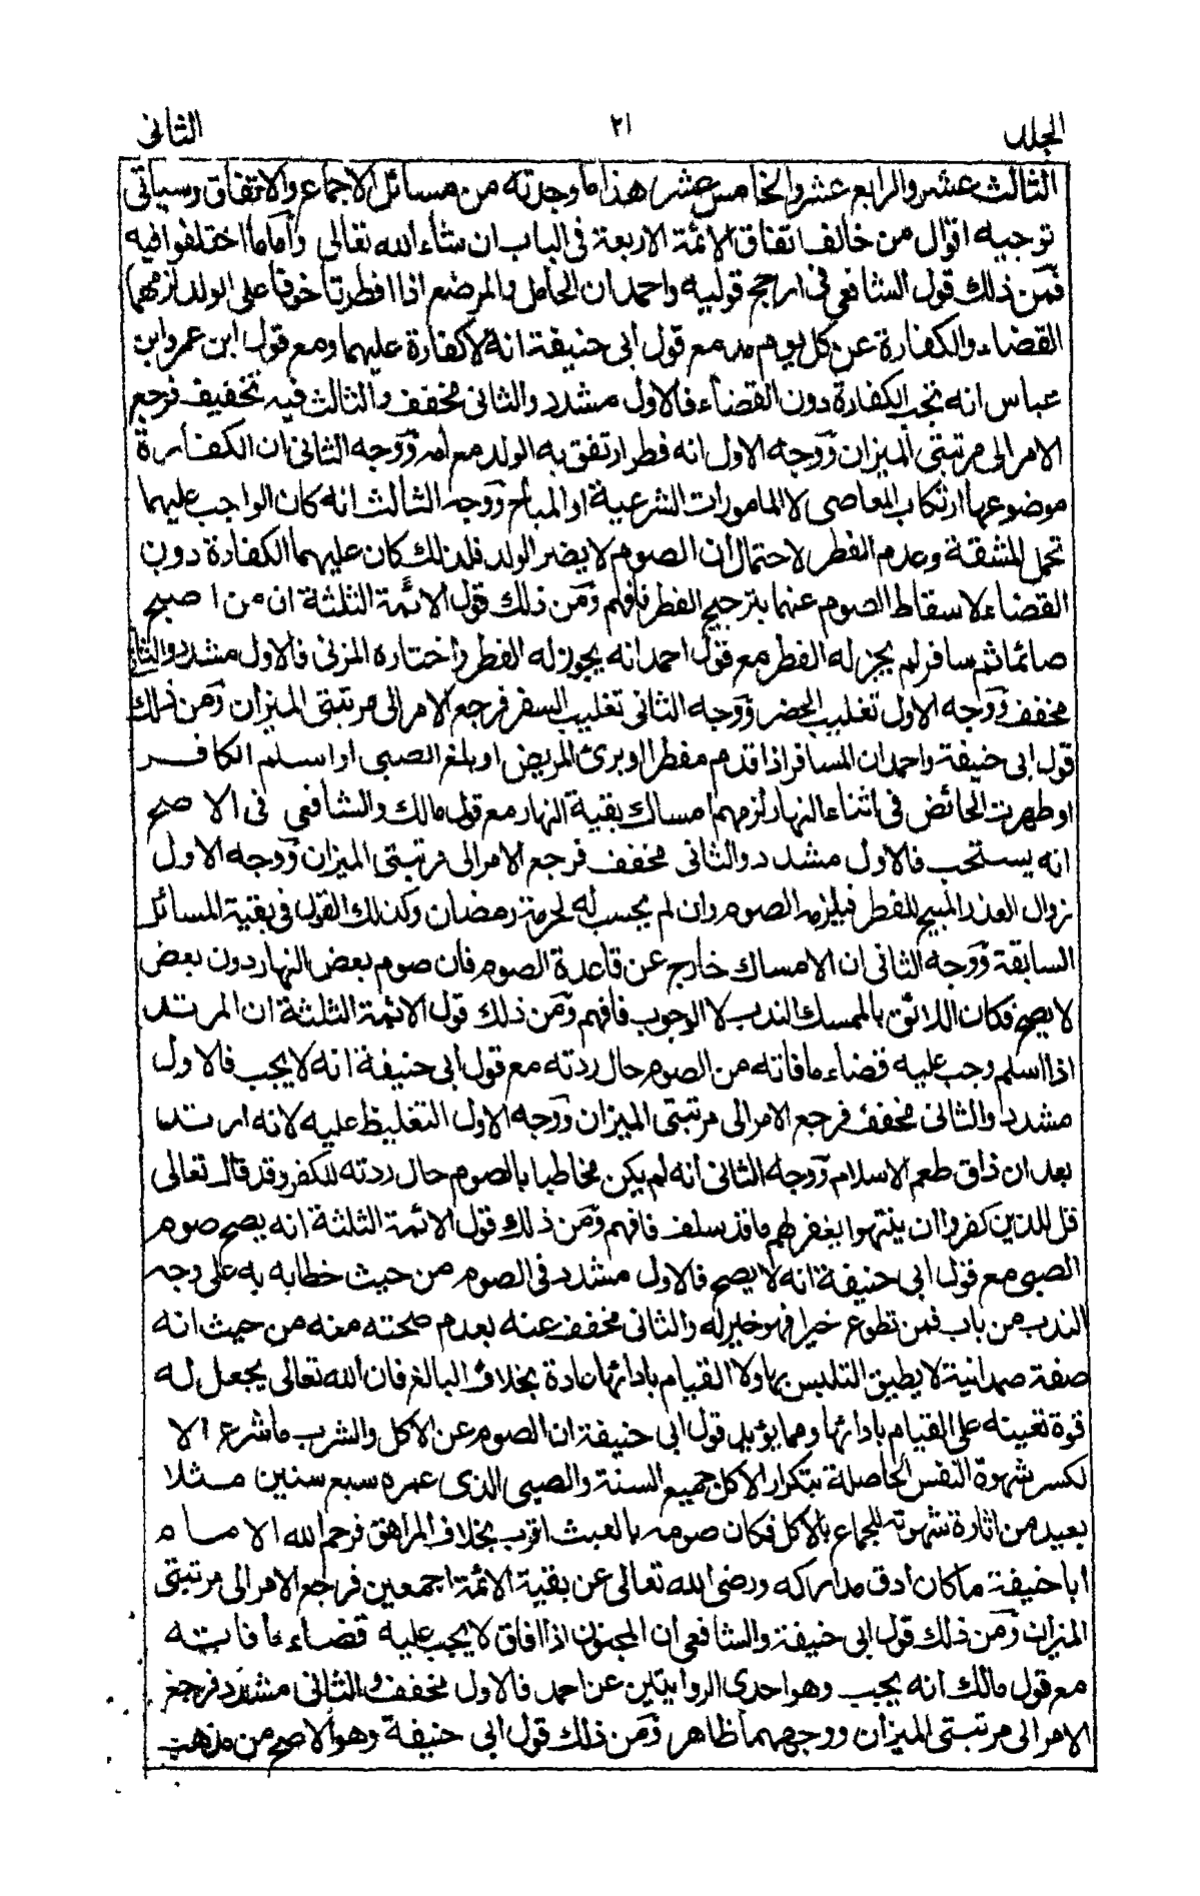 المجلد ٢١ الثانى
الثالث عشر والرابع عشر والخامس عشر هذا ما وجدته من مسائل الاجماع والاتفاق وسياتى
توجيه اقوال من خالف اتفاق الائمة الاربعة فى الباب ان شاء الله تعالى وأما ما اختلفوا فيه
فمن ذلك قول الشافعي في ارجح قوليه واحمد ان الحامل والمرضع اذا افطرتا خوفا على الولد لزمهما
القضاء والكفارة عن كل يوم مد مع قول ابى حنيفة انه لا كفارة عليهما ومع قول ابن عمر وابن
عباس انه تجب الكفارة دون القضاء فالاول مشدد والثانى مخفف والثالث فيه تخفيف فرجع
الامر الى مرتبتى الميزان ووجه الاول انه فطر ارتفق به الولد مع امه ووجه الثانى ان الكفارة
موضوعها ارتكاب المعاصى لا المامورات الشرعية او المباح ووجه الثالث انه كان الواجب عليهما
تحمل المشقة وعدم الفطر لاحتمال ان الصوم لا يضر الولد فلذلك كان عليهما الكفارة دون
القضاء لاسقاط الصوم عنهما بترجيح الفطر فافهم ومن ذلك قول الائمة الثلثة ان من اصبح
صائما ثم سافر لم يجز له الفطر مع قول احمد انه يجوز له الفطر واختاره المزنى فالاول مشدد والثانى
مخفف ووجه الاول تغليب الحضر ووجه الثانى تغليب السفر فرجع الامر الى مرتبتى الميزان ومن ذلك
قول ابى حنيفة واحمد ان المسافر اذا قدم مفطرا او برئ المريض او بلغ الصبى او اسلم الكافر
او طهرت الحائض فى اثناء النهار لزمهم امساك بقية النهار مع قول مالك والشافعي فى الاصح
انه يستحب فالاول مشدد والثانى مخفف فرجع الامر الى مرتبتى الميزان ووجه الاول
زوال العذر المبيح للفطر فيلزمه الصوم وان لم يحسب له لحرمة رمضان وكذلك القول فى بقية المسائل
السابقة ووجه الثانى ان الامساك خارج عن قاعدة الصوم فان صوم بعض النهار دون بعض
لا يصح فكان اللائق بالممسك الندب لا الوجوب فافهم ومن ذلك قول الائمة الثلثة ان المرتد
اذا اسلم وجب عليه قضاء ما فاته من الصوم حال ردته مع قول أبى حنيفة انه لا يجب فالاول
مشدد والثانى مخفف فرجع الامر الى مرتبتى الميزان ووجه الاول التغليظ عليه لانه ارتد
بعد ان ذاق طعم الاسلام ووجه الثانى انه لم يكن مخاطبا بالصوم حال ردته للكفر وقد قال تعالى
قل للذين كفروا ان ينتهوا يغفر لهم ما قد سلف فافهم ومن ذلك قول الائمة الثلثة انه يصح صوم
الصبى مع قول ابى حنيفة انه لا يصح فالاول مشدد فى الصوم من حيث خطابه به على وجه
الندب من باب فمن تطوع خيرا فهو خير له والثانى مخفف عنه بعدم صحته منه من حيث انه
صفة صمدانية لا يطيق التلبس بها ولا القيام بادائها عادة بخلاف البالغ فان الله تعالى يجعل له
قوة تعينه على القيام بادائها ومما يؤيد قول ابى حنيفة ان الصوم عن الاكل والشرب ما شرع الا
لكسر شهوة النفس الحاصلة بتكرار الاكل جميع السنة والصبى الذى عمره سبع سنين مثلا
بعيد من اثارة شهوته للجماع بالاكل فكان صومه بالعبث اقرب بخلاف المراهق فرحم الله الامام
ابا حنيفة ما كان ادق مداركه ورضى الله تعالى عن بقية الائمة اجمعين فرجع الامر الى مرتبتى
الميزان ومن ذلك قول ابى حنيفة والشافعى ان المجنون اذا افاق لا يجب عليه قضاء ما فاته
مع قول مالك انه يجب وهو احدى الروايتين عن احمد فالاول مخفف والثانى مشدد فرجع
الامر الى مرتبتى الميزان ووجههما ظاهر ومن ذلك قول ابى حنيفة وهو الاصح من مذهب